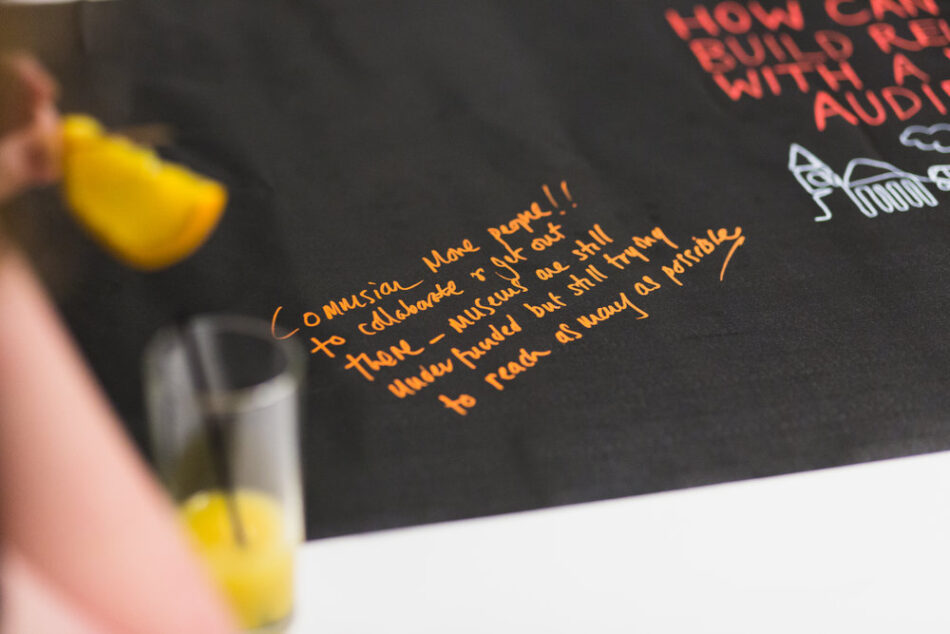 HOW CAN
BUILD REL
WITH A
AUDIE
Commsion More people!!
to collaborate & get out
there – museums are still
under funded but still trying
to reach as many as possible